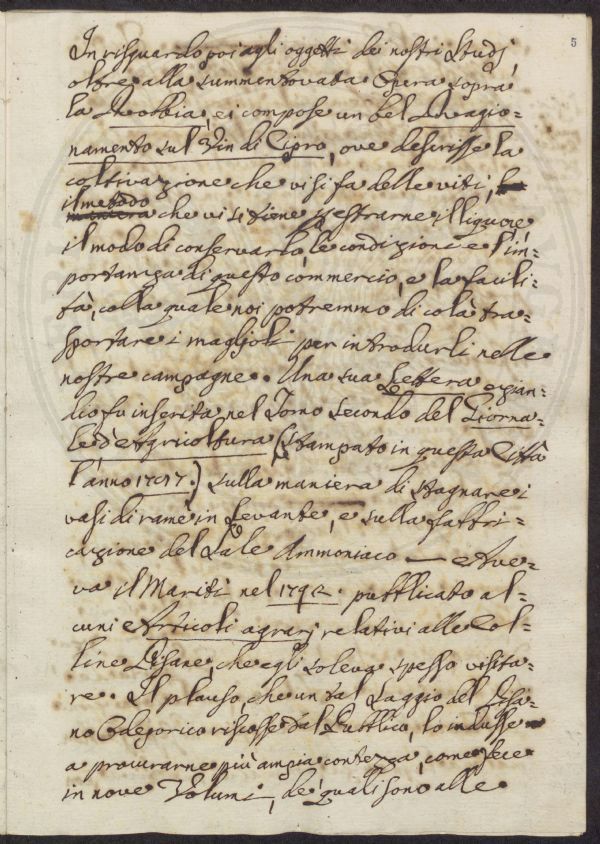 5
In risguardo poi agli oggetti dei nostri Studj,
oltre alla summentovata Opera sopra
la Robbia, ei compose un bel Ragio=
namento sul Vin di Cipro, ove descrisse la
coltivazione che vi si fa delle viti, la
il metodo
maniera che vi si tiene p estrarne il liquore
il modo di conservarlo, le condizioni e l'im=
portanza di questo commercio, e la facili=
tà, colla quale noi potremmo di colà tra=
sportare i maglioli per introdurli nelle
nostre campagne. Una sua Lettera ezian=
dio fu inserita nel Tomo Secondo del Giorna=
le d'Agricoltura (stampato in questa Città
l'anno) sulla maniera di Stagnare i
vasi di rame in Levante, e sulla fabbri=
cazione del Sale Ammoniaco — e Ave=
va il Mariti nel 1792. pubblicato al=
cuni Articoli agrarj relativi alle Col=
line Pisane, che egli soleva spesso visita=
re. Il plauso, che un tal Saggio del Pisa=
no Odeporico riscosse dal Pubblico, lo indusse
a procurarne più ampia contezza, come fece
in nove Volumi, de' quali sono alle